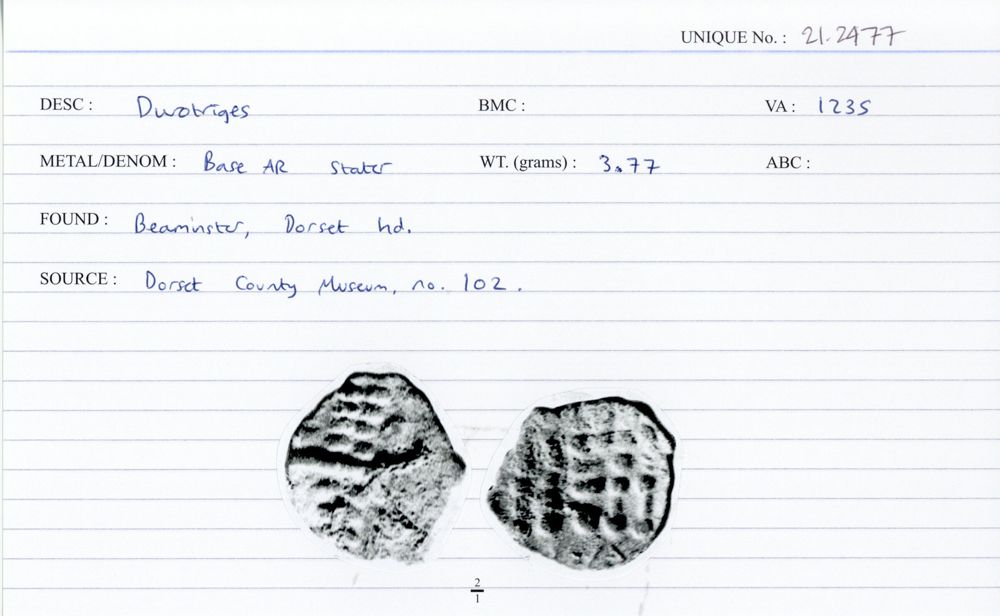 UNIQUE No. : 21.2477
DESC : Durotriges BMC : VA : 1235
METAL/DENOM : Base AR Stater WT. (grams) : 3.77 ABC :
FOUND : Beaminster, Dorset hd.
SOURCE : Dorset County Museum, no. 102.
2
1